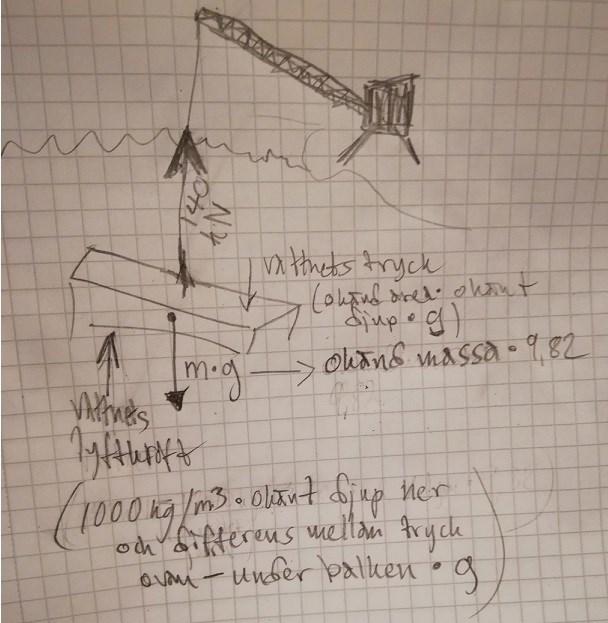 140
kN
vattnets tryck
(okänd area · okänt
djup · g)
m·g → okänd massa · 9,82
vattnets
lyftkraft
(1000 kg/m3 · okänt djup ner
och differens mellan tryck
ovan - under balken · g)